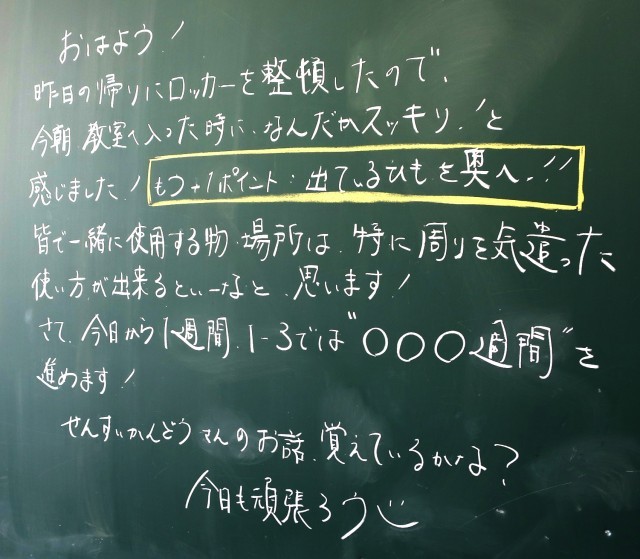 おはよう!
昨日の帰りにロッカーを整頓したので、
今朝教室へ入った時に、なんだかスッキリ!と
感じました!もう+1ポイント:出ているひもを奥へ!!
皆で一緒に使用する物・場所は、特に周りを気遣った
使い方が出来るといーなと、思います!
さて、今日から1週間、1-3では"〇〇〇週間"を
進めます!
せんすいかんどうさんのお話、覚えているかな?
今日も頑張ろう